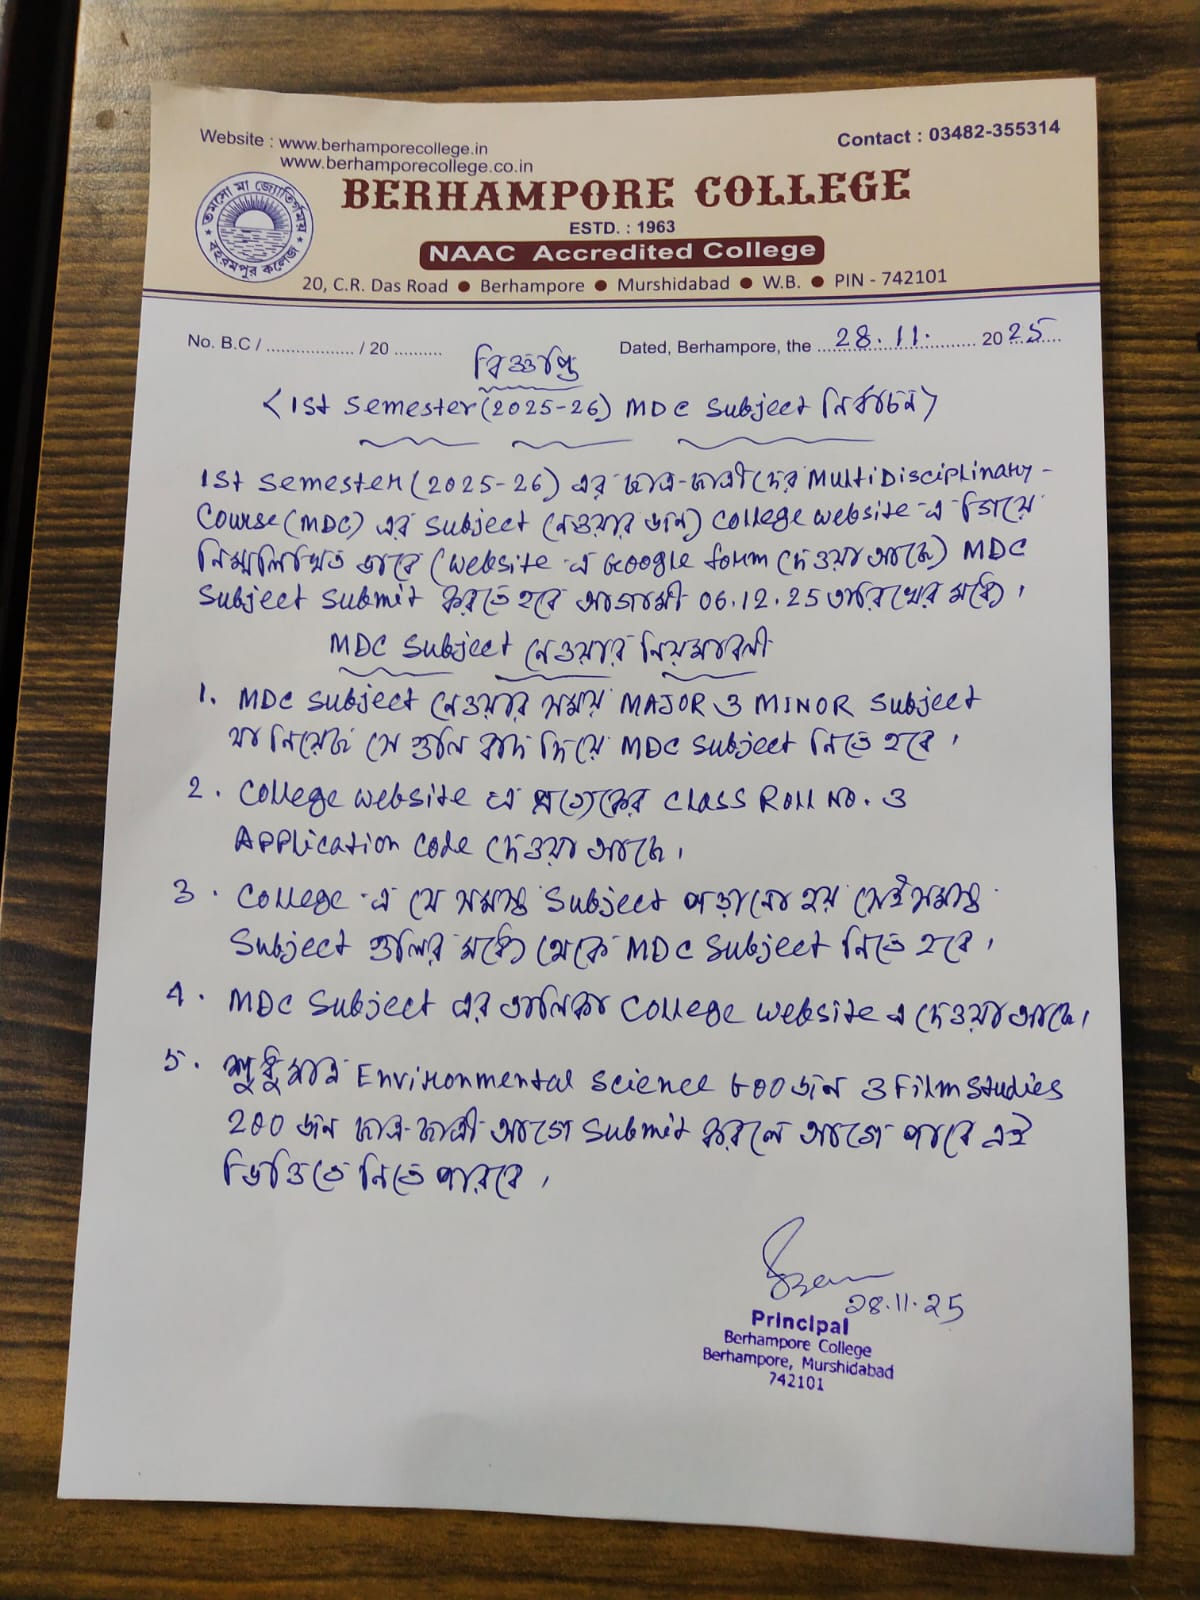 Website : www.berhamporecollege.in
www.berhamporecollege.co.in
Contact : 03482-355314
তমসো মা জ্যোতির্গময়
বহরমপুর কলেজ
BERHAMPORE COLLEGE
ESTD. : 1963
NAAC Accredited College
20, C.R. Das Road ● Berhampore ● Murshidabad ● W.B. ● PIN - 742101
No. B.C / .................. / 20 ..........
Dated, Berhampore, the 28.11. 2025
বিজ্ঞপ্তি
<1st Semester (2025-26) MDC Subject নির্বাচন>
1st Semester (2025-26) এর ছাত্র-ছাত্রীদের MultiDisciplinary-
Course (MDC) এর Subject নেওয়ার জন্য College website -এ গিয়ে
নিম্নলিখিত ভাবে (website -এ Google form দেওয়া আছে) MDC
Subject Submit করতে হবে আগামী 06.12.25 তারিখের মধ্যে।
MDC Subject নেওয়ার নিয়মাবলী
1. MDC Subject নেওয়ার সময় MAJOR ও MINOR Subject
যা নিয়েছ সে গুলি বাদ দিয়ে MDC Subject নিতে হবে।
2. College website এ প্রত্যেকের Class Roll No. ও
Application Code দেওয়া আছে।
3. College -এ যে সমস্ত Subject পড়ানো হয় সেই সমস্ত
Subject গুলির মধ্যে থেকে MDC Subject নিতে হবে।
4. MDC Subject এর তালিকা College website এ দেওয়া আছে।
5. শুধুমাত্র Environmental Science 600 জন ও Film Studies
200 জন ছাত্র-ছাত্রী আগে Submit করলে আগে পাবে এই
ভিত্তিতে নিতে পারবে।
28.11.25
Principal
Berhampore College
Berhampore, Murshidabad
742101